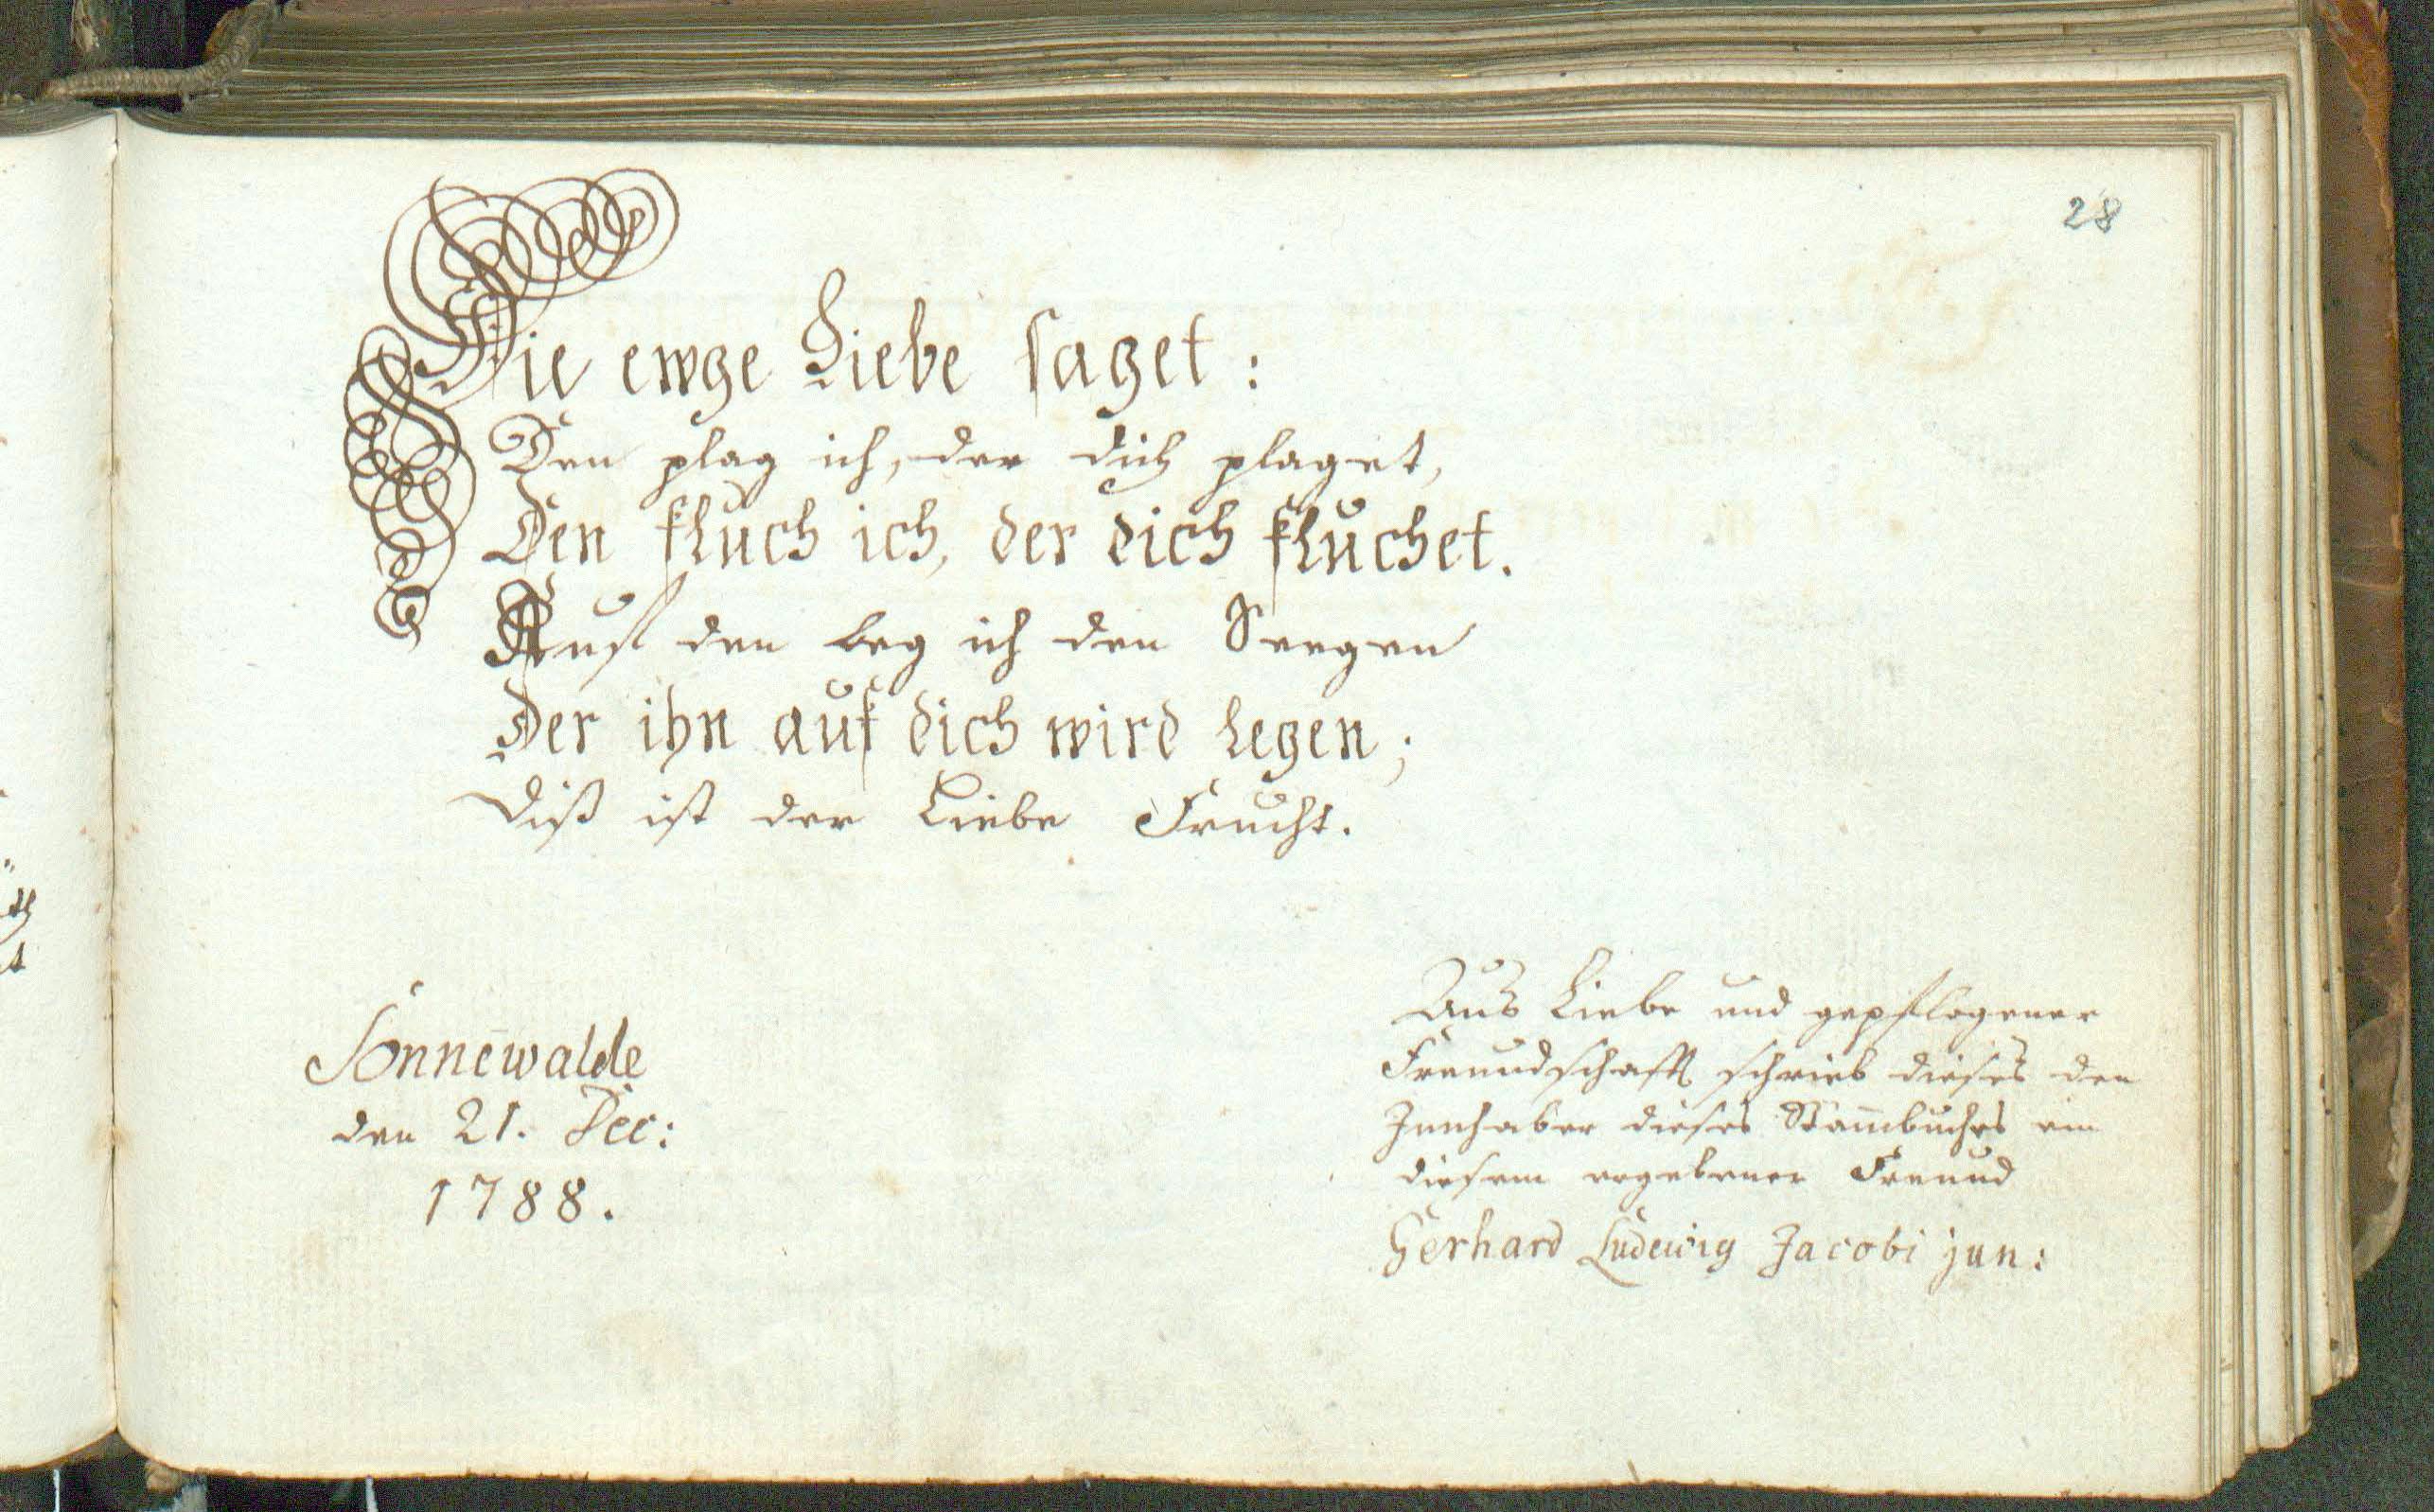 28
Die ewge Liebe saget:
Den plag ich, der dich plaget,
Den fluch ich, der dich fluchet.
Auf den leg ich den Seegen
Der ihn auf dich wird legen;
Diß ist der Liebe Frucht.
Sonnewalde
den 21. Dec:
1788.
Aus Liebe und gepflogener
Freundschafft schrieb dieses den
Innhaber dieses Stam̅buches ein
diesem ergebener Freund
Gerhard Ludewig Jacobi jun: